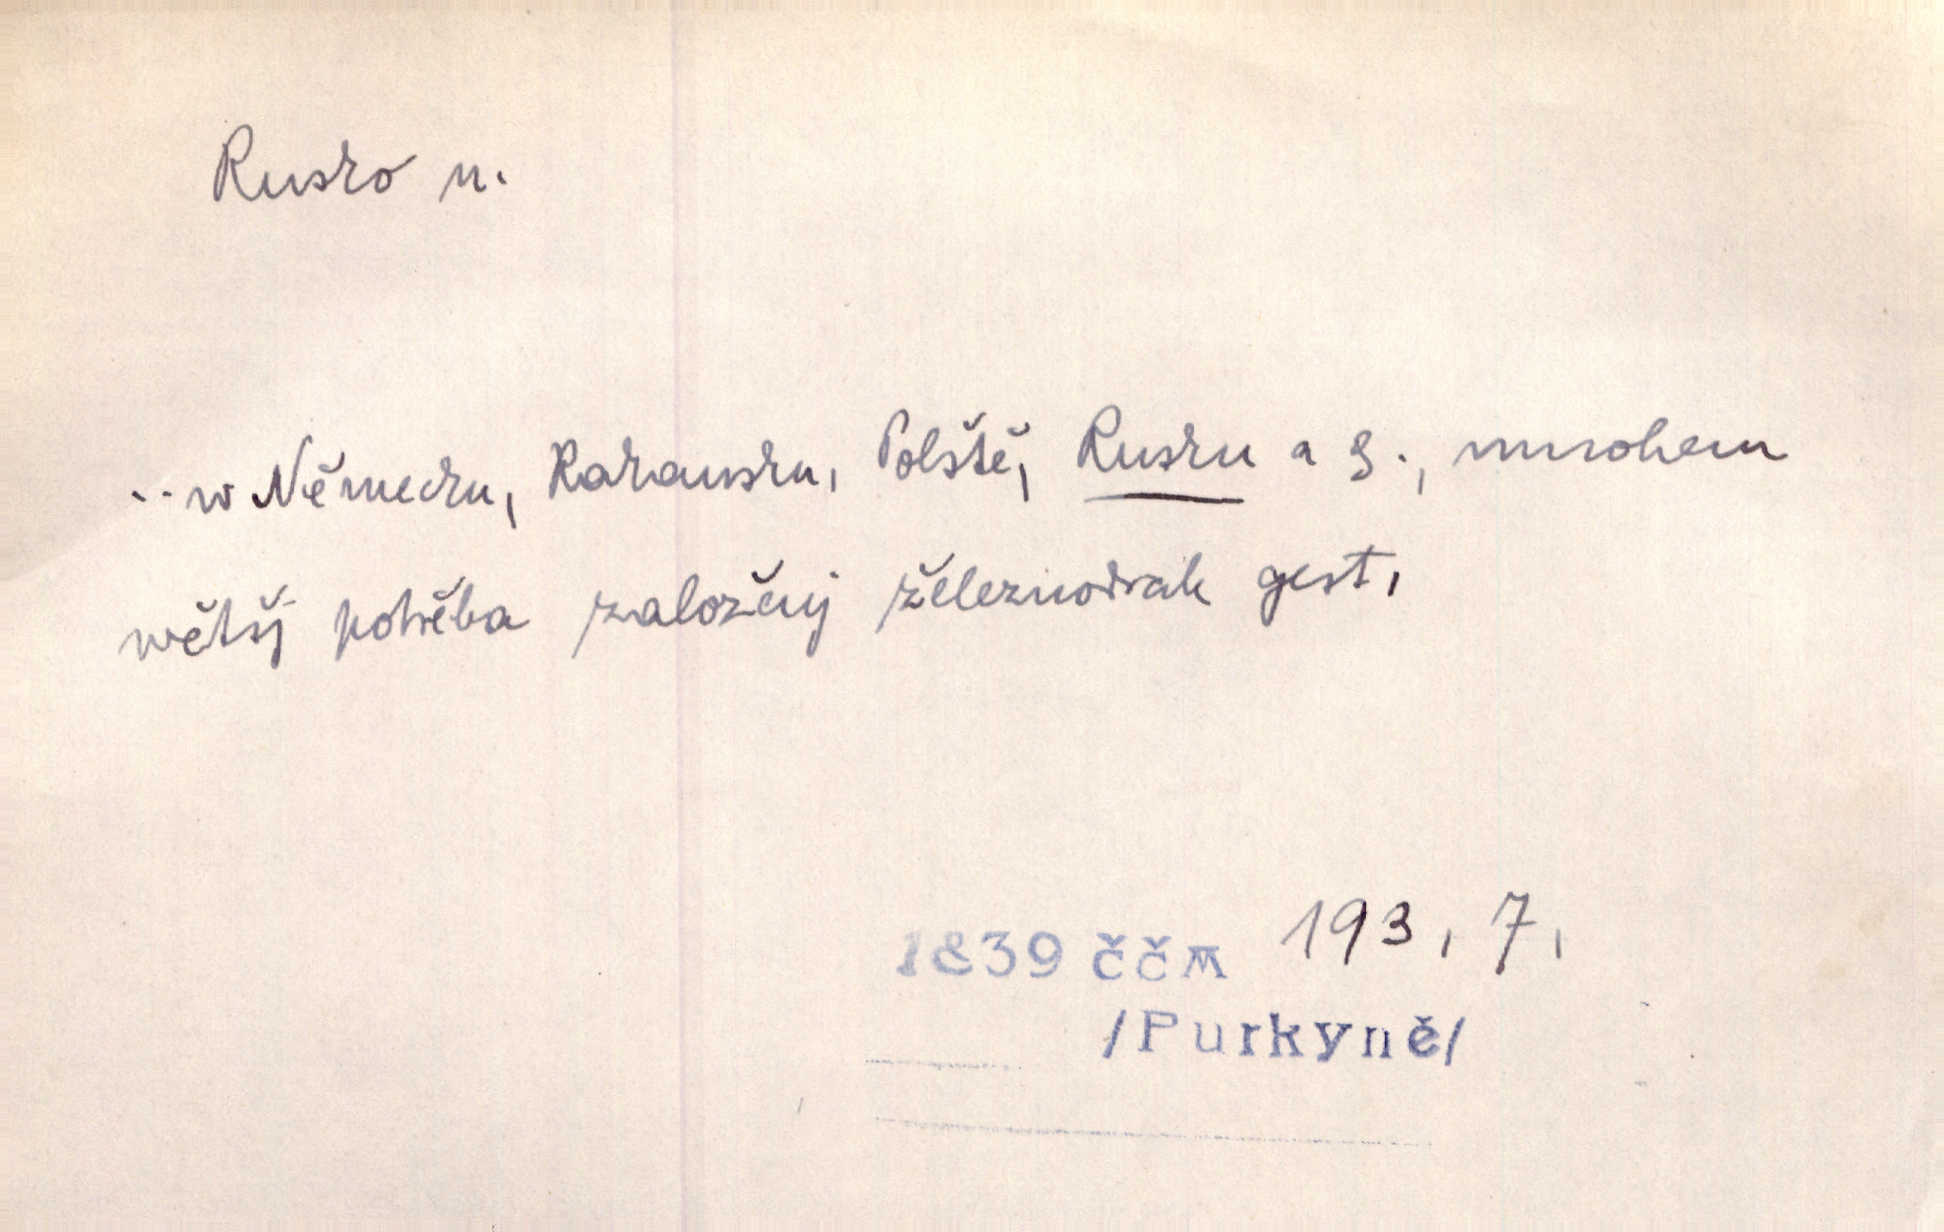 Rusko n.
.. w Německu, Rakausku, Polště, Rusku a g., mnohem
wětšj potřeba založenj železnodrah gest,
1839 ččm 193, 7,
/Purkyně/